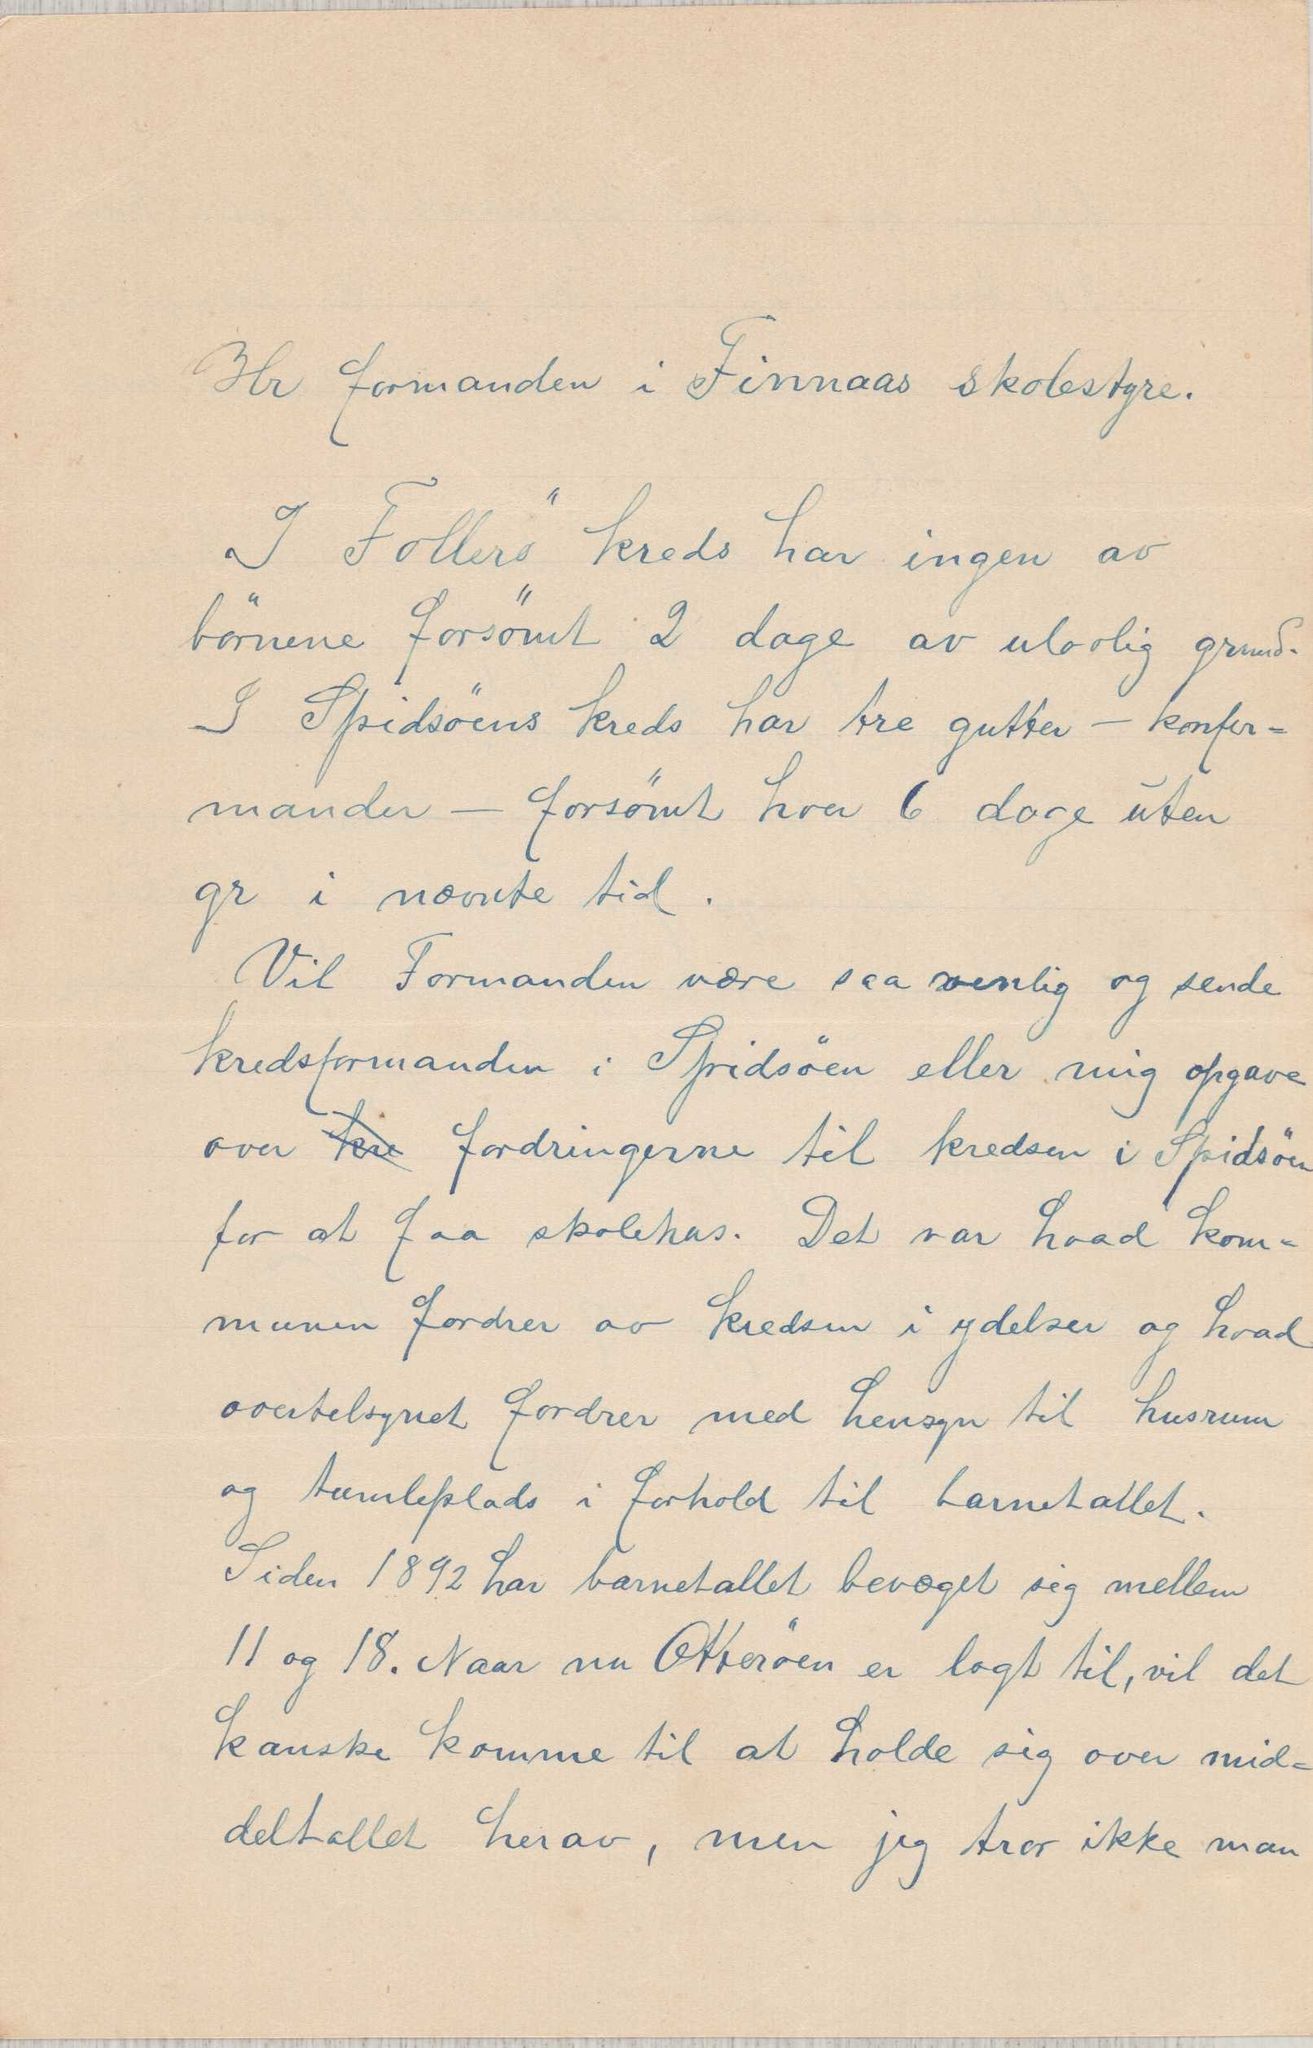 Hr formanden i Finnaas skolestyre.
I Follerö kreds har ingen av
börnene forsömt 2 dage av ulovlig grund.
I Spidsöens kreds har tre gutter – konfir=
mander – forsömt hver 6 dage uten
gr i nævnte tid.
Vil Formanden være saa venlig og sende
kredsformanden i Spidsöen eller mig opgave
over kre fordringerne til kredsen i Spidsöen
for at faa skolehus. Det var hvad kom=
munen fordrer av kredsen i ydelser og hvad
overtelsynet fordrer med hensyn til husrum
og tumleplads i forhold til barnetallet.
Siden 1892 har barnetallet bevæget sig mellem
11 og 18. Naar nu Otteröen er lagt til, vil det
kanske komme til at holde sig over mid=
deltallet herav, men jeg tror ikke man